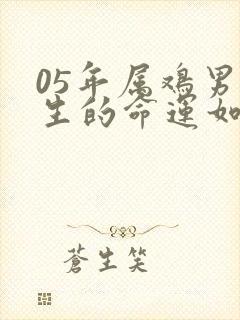 05年属鸡男
生的命运如
蒼生笑